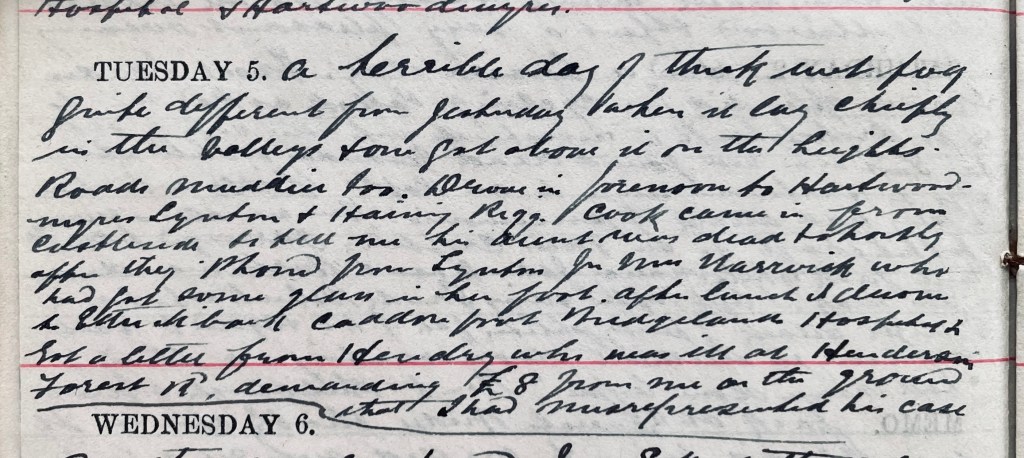 Hospital & Hartwoodmyres.
TUESDAY 5. A terrible day of thick wet fog
quite different from yesterday when it lay chiefly
in the valleys & one got above it on the heights.
Roads muddier too. Drove in forenoon to Hartwood-
myres Lynton & Haining Rigg. Cook came in from
Castleside to tell me his aunt was dead & shortly
after they 'Phoned from Lynton for Mrs Warwick who
had got some glass in her foot. After lunch I drove
to Ettrickbank Caddonfoot Bridgelands Hospital &
Got a letter from Hendry who was ill at Henderson
Forest Rd, demanding £8 from me on the ground
that I had misrepresented his case
WEDNESDAY 6.